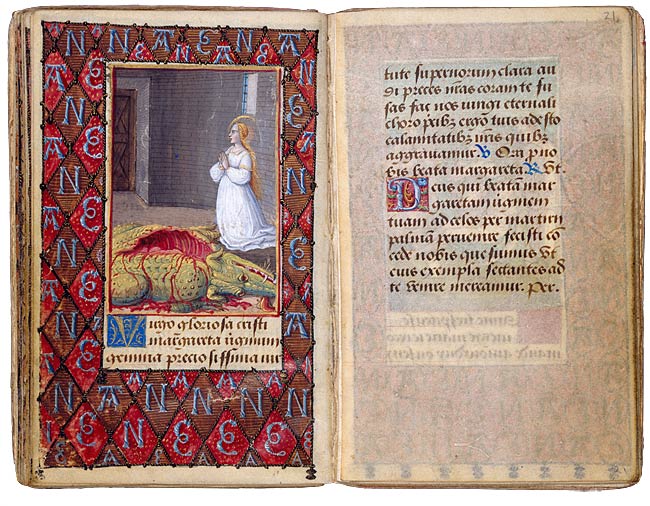 Virgo gloriosa cristi
margareta v̄ginum
gemma preciosissima
21
tute supernorum clara au
di preces n̄ras coram te fu
sas fac nos iungi eternali
choro p̄cibꝫ ergo tuis adesto
calamitatibꝫ n̄ris quibꝫ
aggrauamur. V Ora p̄ no
bis beata margareta. R Vt.
Deus qui beata mar
garetam v̄ginem
tuam ad celos per martirii
palmam peruenire fecisti cō
cede nobis que sumus vt
eius exempla sectantes ad
te venire mereamur. Per.